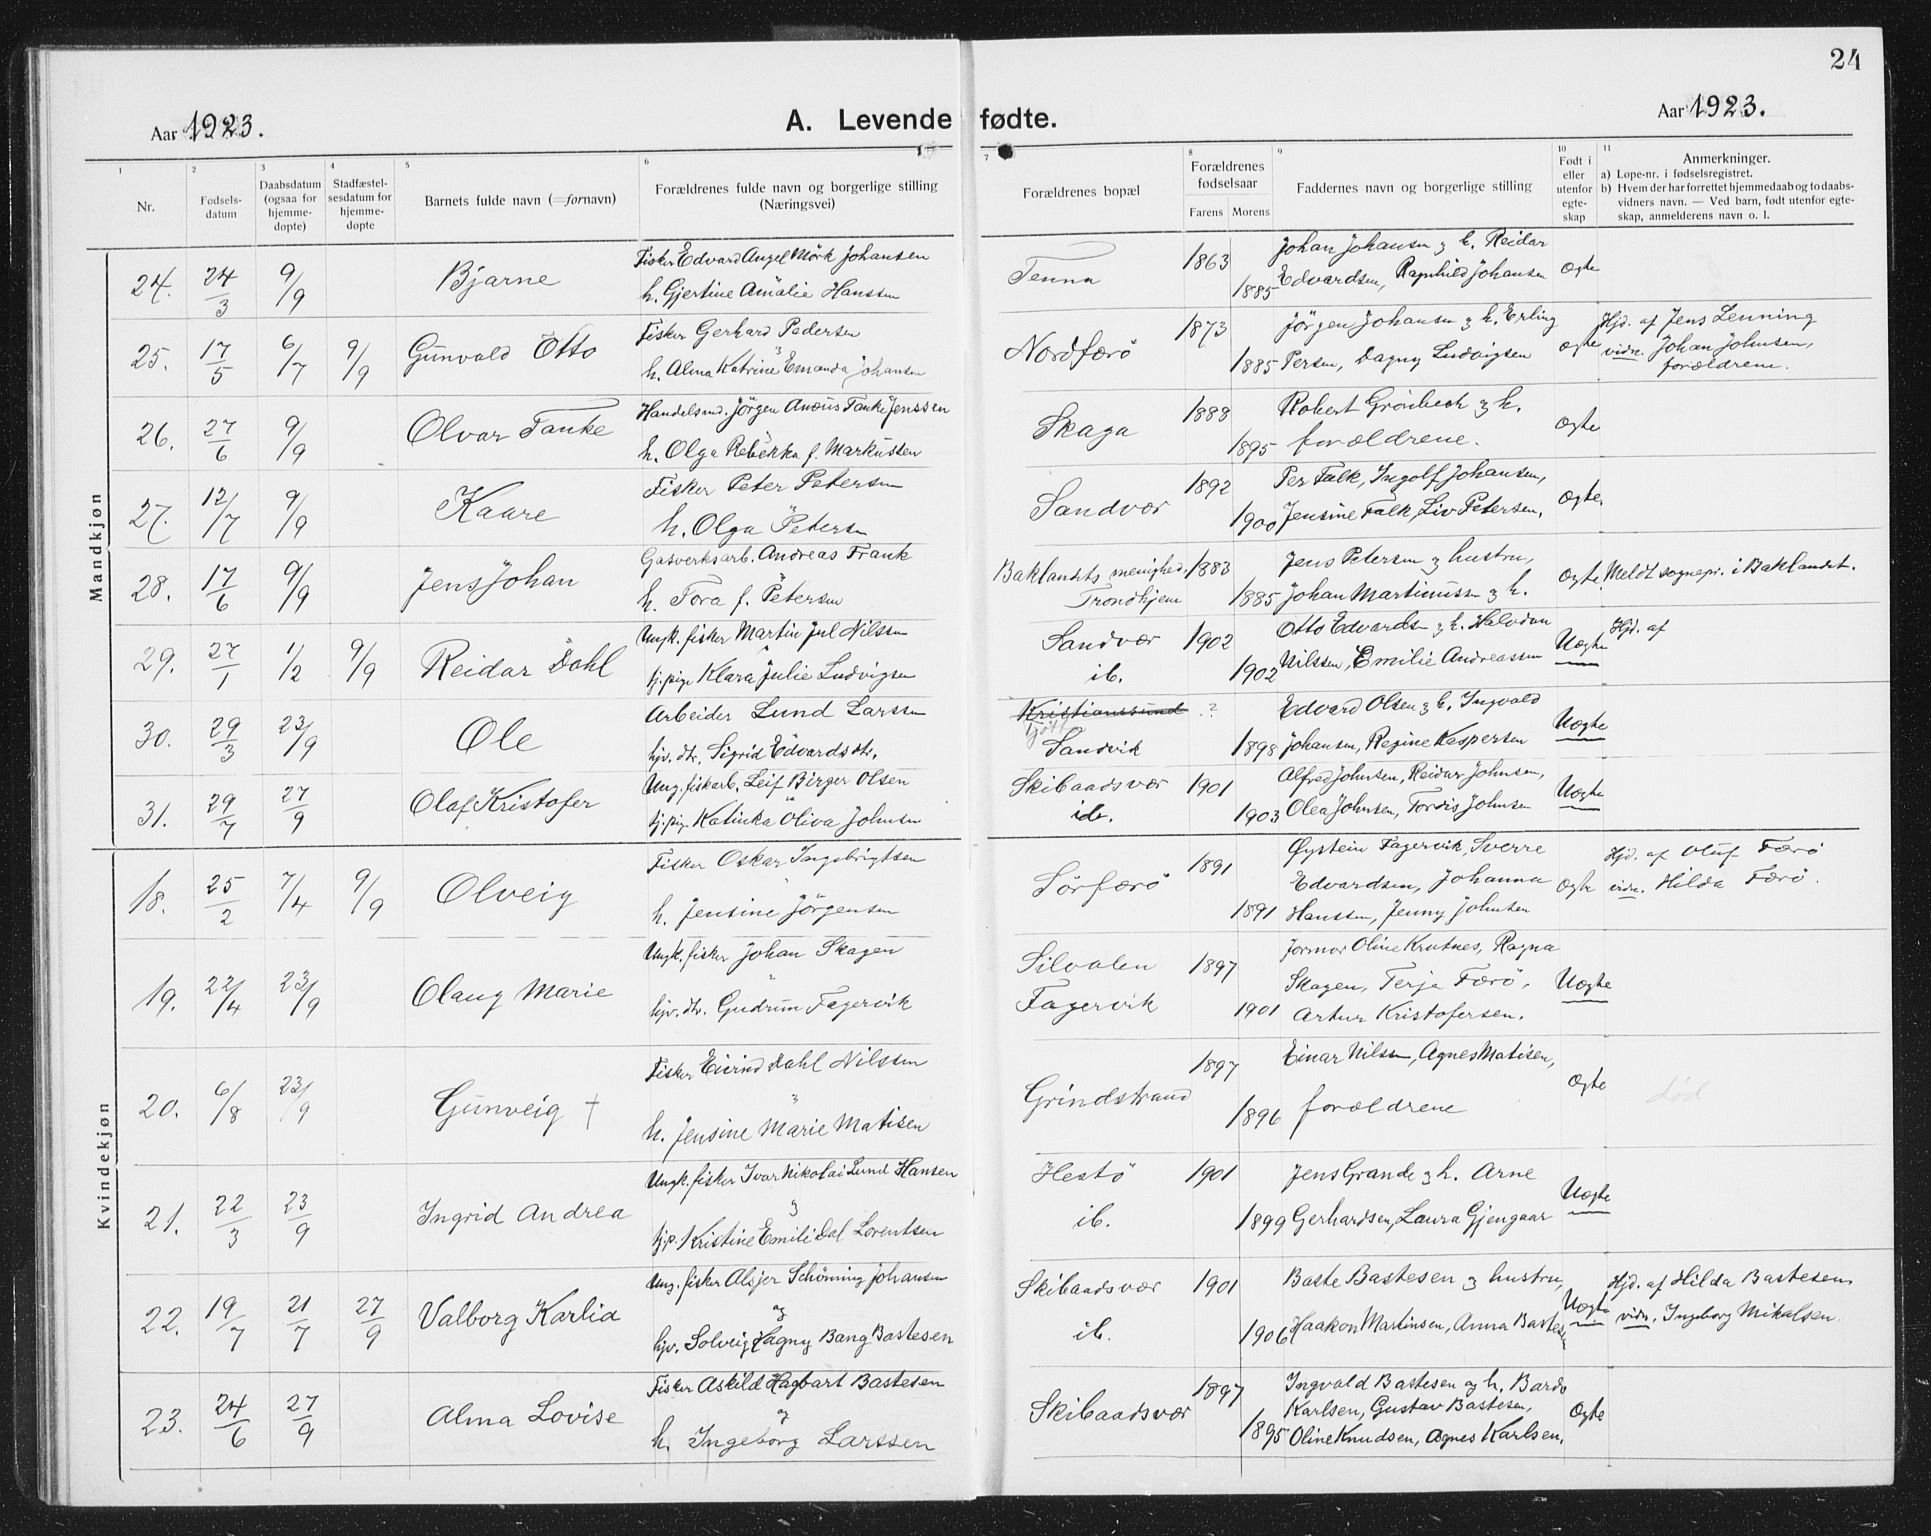 24
Aar 1923.
A. Levende fødte.
Aar 1923.
1 2 3 4 5 6 7 8 9 10 11
Nr.
Fødsels-
datum
Daabsdatum
(ogsaa for
hjemme-
døpte)
Stadfæstel-
sesdatum for
hjemme-
døpte
Barnets fulde navn (=fornavn)
Forældrenes fulde navn og borgerlige stilling
(Næringsvei)
Forældrenes bopæl
Forældrenes
fødselsaar
Farens Morens
Faddernes navn og borgerlige stilling
Født i
eller
utenfor
egte-
skap
Anmerkninger.
a) Lope-nr. i fødselsregistret.
b) Hvem der har forrettet hjemmedaab og to daabs-
vidners navn. — Ved barn, født utenfor egte-
skap, anmelderens navn o. l.
Mandkjøn
24. 24/3 9/9 Bjarne Fisker Edvard Angel Mörk Johansen
h. Gjertine Amalie Hanssen
Tenna 1863 1885 Johan Johansen & h. Reidar
Edvardsen, Ragnhild Johansen Ægte
25. 17/5 6/7 9/9 Gunvald Otto Fisker Gerhard Pedersen
h. Alma Katrine Emanda Johansen
Nordfærö 1873 1885 Jörgen Johansen & h. Erling
Persen, Dagny Ludvigsen Ægte Hjd. af Jens Lenning
vidn. Johan Johnsen,
forældrene.
26. 27/6 9/9 Olvar Tanke Handelsmd. Jörgen Anæus Tanke Jenssen
h. Olga Rebekka f. Markussen
Skaga 1888 1895 Robert Grönbech & h.
forældrene. Ægte
27. 12/7 9/9 Kaare Fisker Peter Petersen
h. Olga Petersen
Sandvær 1892 1900 Per Falk, Ingolf Johansen,
Jensine Falk, Liv Petersen. Ægte
28. 17/6 9/9 Jens Johan Gasverksarb. Andreas Frank
h. Tora f. Petersen
Baklandets menighed.
Trondhjem 1883 1885 Jens Petersen & hustru,
Johan Martinussen & h. Ægte Meldt sognepr. i Baklandet.
29. 27/1 1/2 9/9 Reidar Dahl Ungk. fisker Martin Jul Nilssen
tj. pige Klara Julie Ludvigsen
Sandvær
ib. 1902 1902 Otto Edvardsen & h. Halvdan
Nilssen, Emilie Andreassen Uægte Hjd. af
30. 29/3 23/9 Ole Arbeider Lund Larssen
hjv. dtr. Sigrid Edvardsdtr.
Kristianssund ?
Tjötta
Sandvik 1898 Edvard Olsen & h. Ingvald
Johansen, Regine Kaspersen Uægte
31. 29/7 27/9 Olaf Kristofer Ung. fiskarb. Leif Birger Olsen
tj. pige Katinka Oliva Johnsen
Skibaadsvær
ib. 1901 1903 Alfred Johnsen, Reidar Johnsen,
Olea Johnsen, Tordis Johnsen Uægte
Kvindekjøn
18. 25/2 7/4 9/9 Olveig Fisker Oskar Ingebrigtsen
h. Jensine Jörgensen
Sörfærö 1891 1891 Øystein Fagervik, Sverre
Edvardsen, Johanna
Hanssen, Jenny Johnsen Ægte Hjd. af Oluf Færö
vidn. Hilda Færö.
19. 22/4 23/9 Olaug Marie Ungk. fisker Johan Skagen
hjv. dtr. Gudrun Fagervik
Silvalen
Fagervik 1897 1901 Jormor Oline Krutnes, Ragna
Skagen, Terje Færö,
Artur Kristofersen. Uægte
20. 6/8 23/9 Gunveig † Fisker Eivind Dahl Nilssen
&
h. Jensine Marie Matisen
Grindstrand 1897 1896 Einar Nilssen, Agnes Matisen,
forældrene Ægte død
21. 22/3 23/9 Ingrid Andrea Ungk. fisker Ivar Nikolai Lund Hansen
&
tj.p. Kristine Emilie Dal Lorentsen
Hestö
ib. 1901 1899 Jens Grande & h. Arne
Gerhardsen, Laura Gjengaar Uægte
22. 19/7 21/7 27/9 Valborg Karlia Ung. fisker Alsjer Schönning Johansen
og
hjv. Solveig Dagny Bang Bastesen
Skibaadsvær
ib. 1901 1906 Baste Bastesen og hustru,
Haakon Martinsen, Anna Bastesen Uægte Hjd. af Hilda Bastesen
vidn. Ingeborg Mikalsen.
23. 24/6 27/9 Alma Lovise Fisker Askild Hagbart Bastesen
og
h. Ingeborg Larssen
Skibaadsvær 1897 1895 Ingvald Bastesen og h. Bardo
Karlsen, Gustav Bastesen,
Oline Knudsen, Agnes Karlsen. Ægte